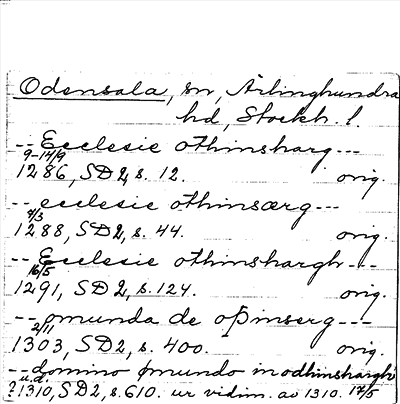 Odensala, sn, Ärlinghundra
hd, Stockh. l.
-- Ecclesie othinsharg ---
9-14/9
1286, SD2, s. 12. orig.
-- ecclesie othinsærg ---
4/3
1288, SD2, s. 44. orig.
-- Ecclesie othinshargh ---
16/5
1291, SD2, s. 124. orig.
-- omunda de oþinserg ---
2/11
1303, SD2, s. 400. orig.
-- domino omundo in odhinsharghi
u.d.
?1310, SD2, s. 610. ur vidim. av 1310. 17/5